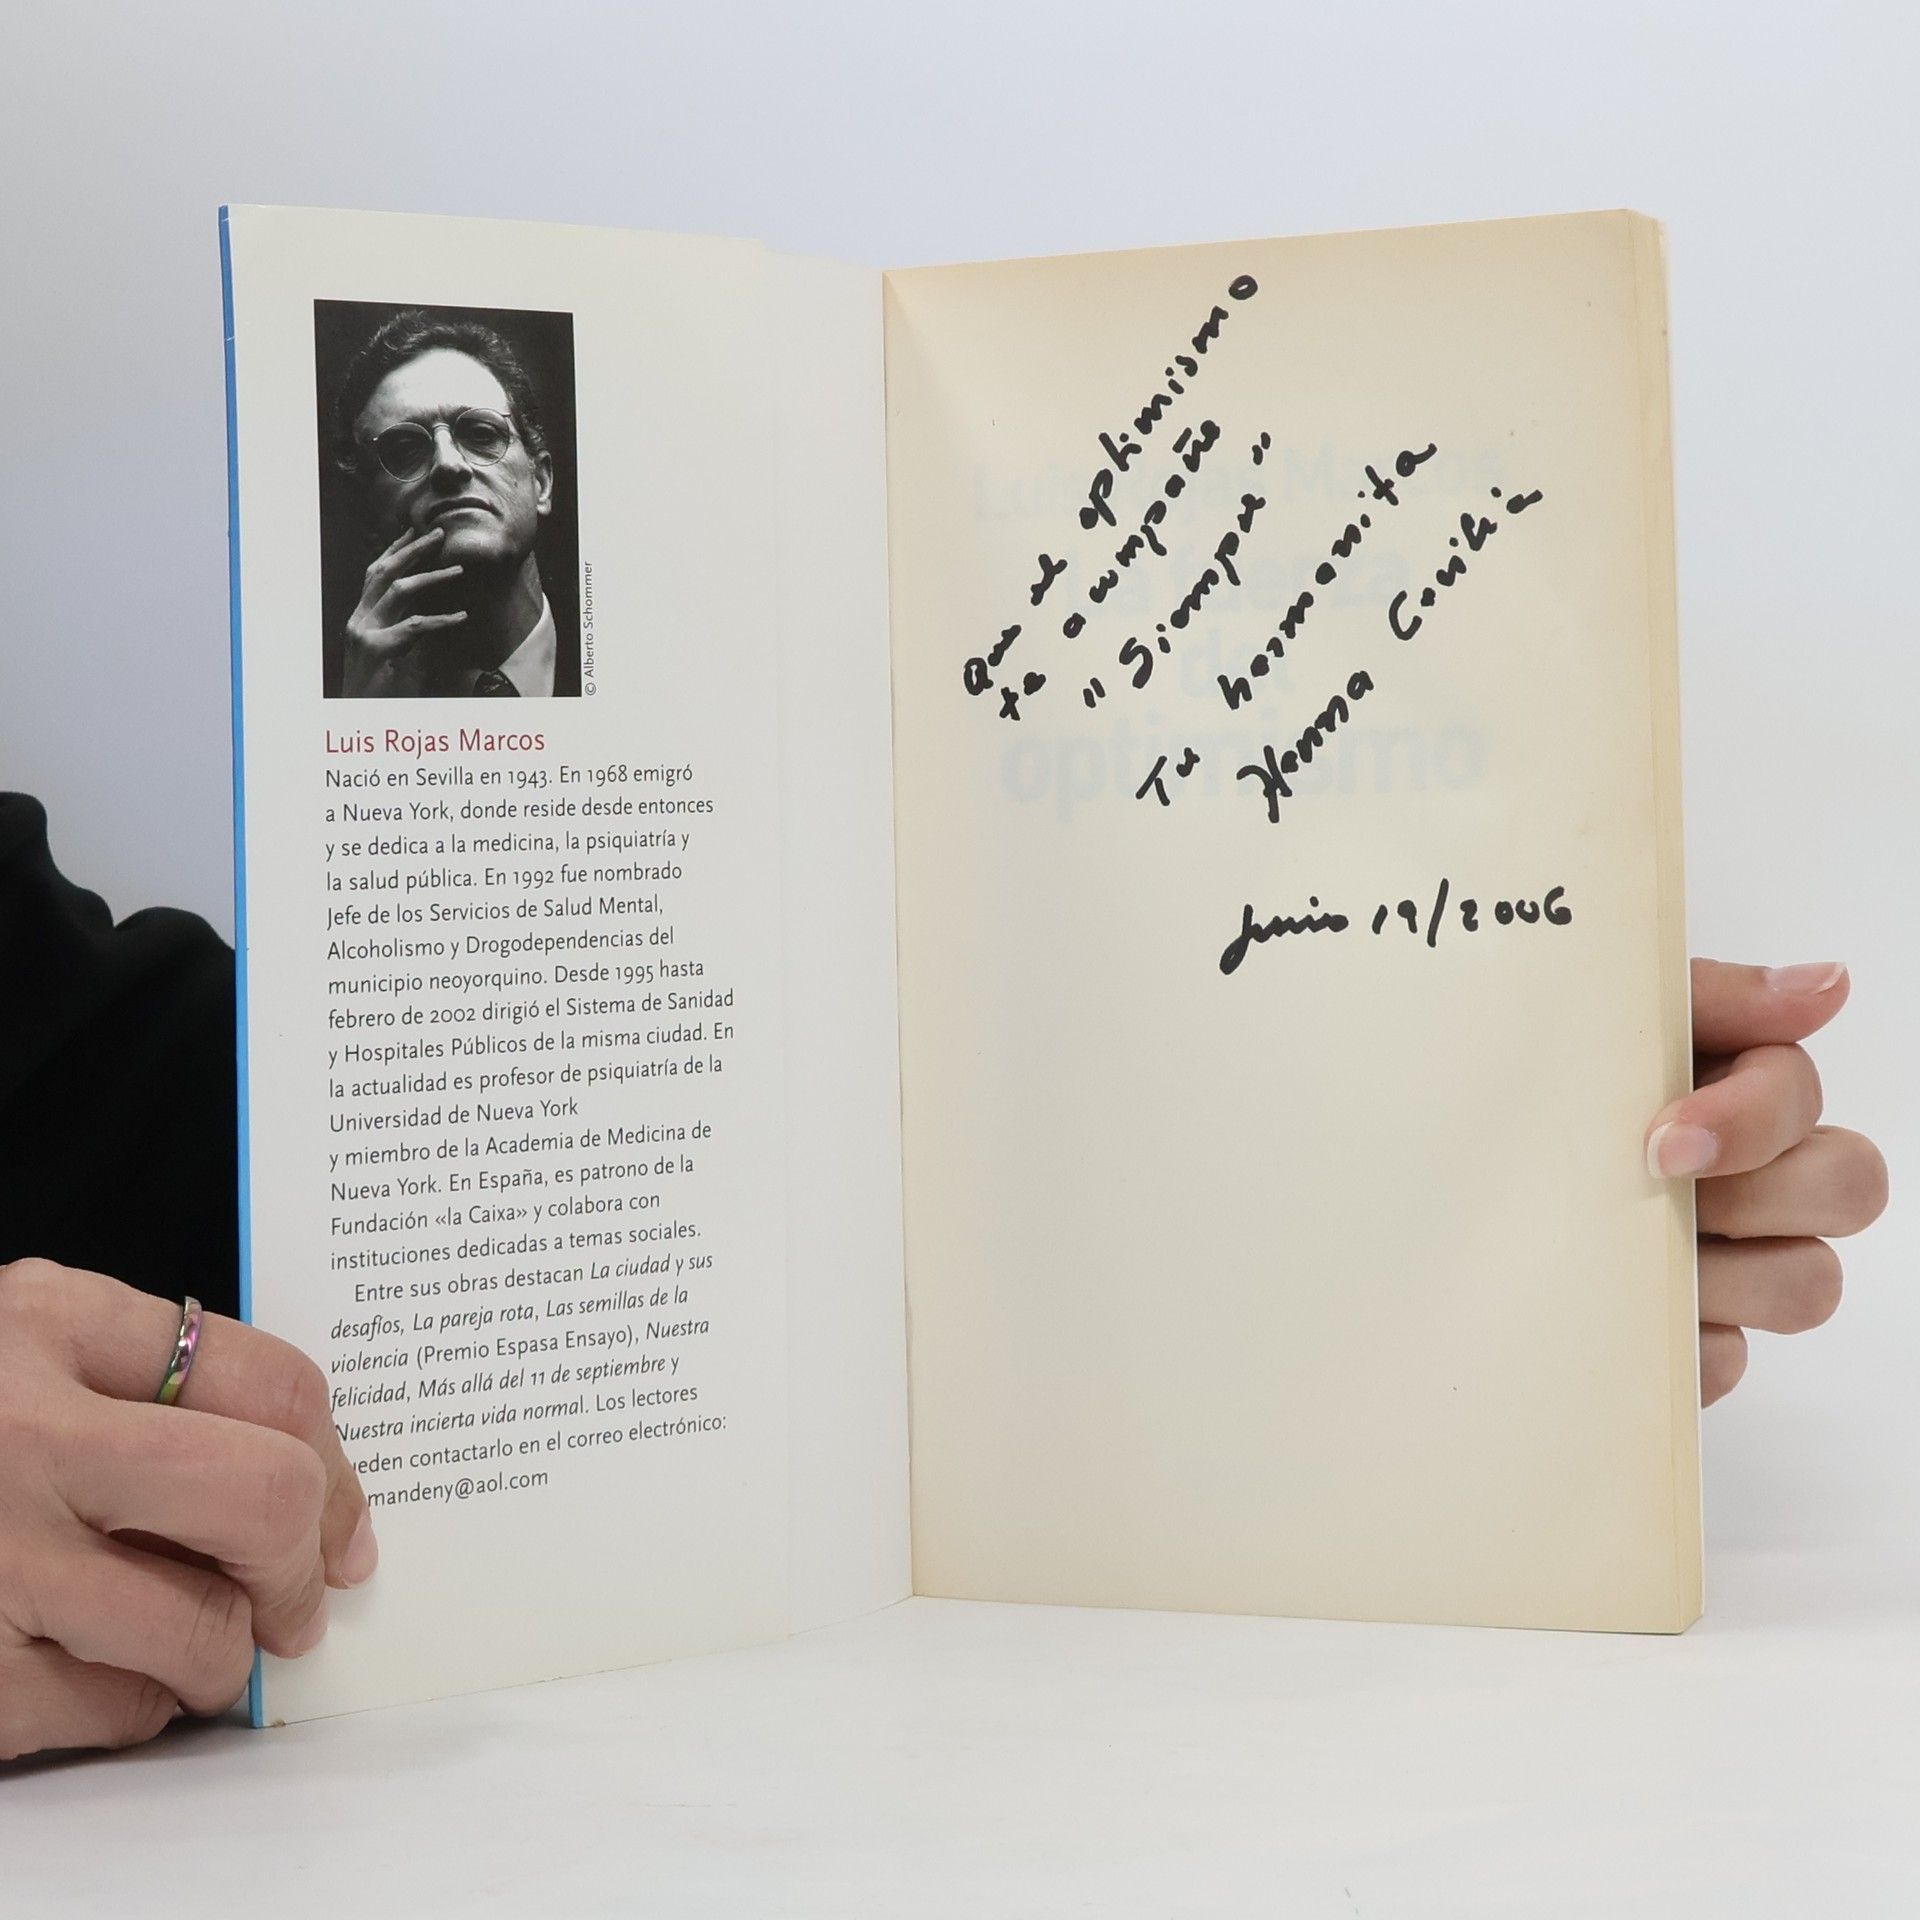 © Alberto Schommer
Luis Rojas Marcos
Nació en Sevilla en 1943. En 1968 emigró
a Nueva York, donde reside desde entonces
y se dedica a la medicina, la psiquiatría y
la salud pública. En 1992 fue nombrado
Jefe de los Servicios de Salud Mental,
Alcoholismo y Drogodependencias del
municipio neoyorquino. Desde 1995 hasta
febrero de 2002 dirigió el Sistema de Sanidad
y Hospitales Públicos de la misma ciudad. En
la actualidad es profesor de psiquiatría de la
Universidad de Nueva York
y miembro de la Academia de Medicina de
Nueva York. En España, es patrono de la
Fundación «la Caixa» y colabora con
instituciones dedicadas a temas sociales.
Entre sus obras destacan La ciudad y sus
desafíos, La pareja rota, Las semillas de la
violencia (Premio Espasa Ensayo), Nuestra
felicidad, Más allá del 11 de septiembre y
Nuestra incierta vida normal. Los lectores
ueden contactarlo en el correo electrónico:
mandeny@aol.com
Que el optimismo
te acompañe
"Siempre"
Tu hermanita
Cecilia
Junio 19/2006
Luis Rojas Marcos
La fuerza
del
optimismo